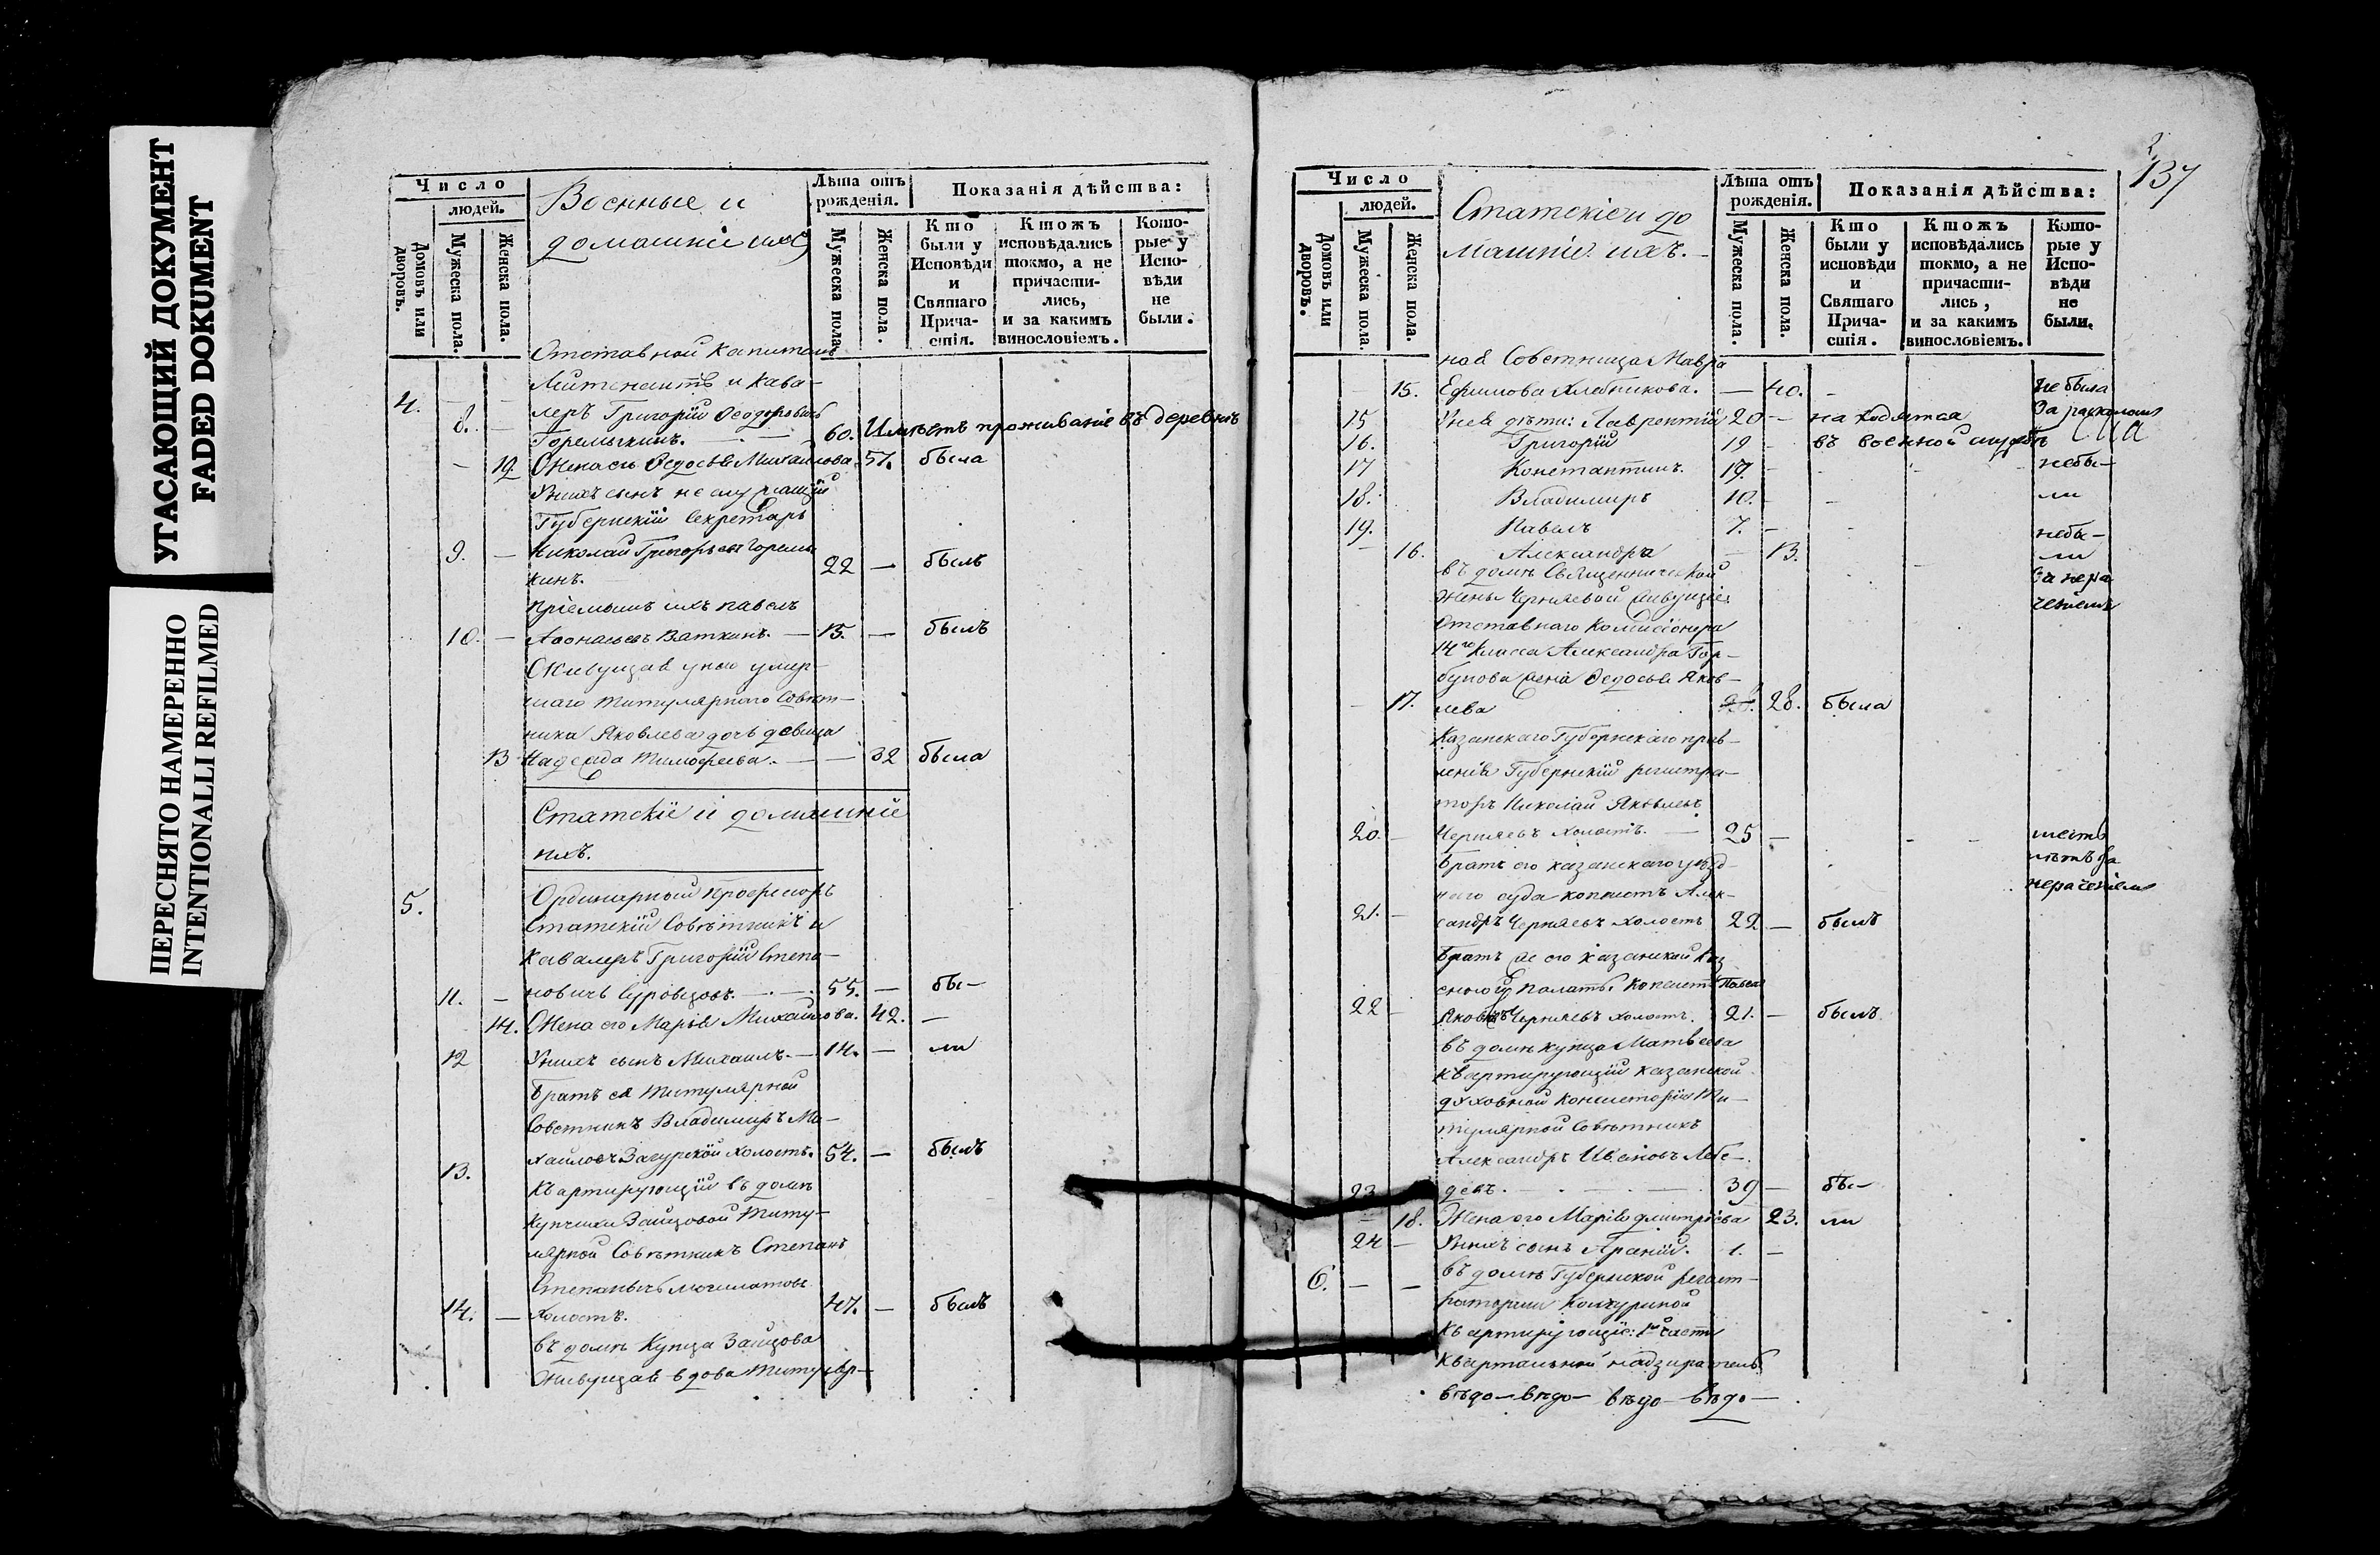 УГАСАЮЩИЙ ДОКУМЕНТ
FADED DOKUMENT
ПЕРЕСНЯТО НАМЕРЕННО
INTENTIONALLI REFILMED
Число
людей.
Домовъ или дворовъ.
Мужеска пола.
Женска пола.
Военные и
домашніе ихъ
Лѣта отъ рожденія.
Мужеска пола.
Женска пола.
Показанія дѣйства:
Кто были у Исповѣди и Святаго Причастія.
Ктожъ исповѣдались токмо, а не причастились, и за какимъ винословіемъ.
Которые у Исповѣди не были.
Отставной Капитанъ
4. Лейтенантъ и Кава-
8. — леръ Григорій Ѳеодоровичь
Горемыкинъ. 60. Имѣетъ проживаніе въ деревнѣ
— 12 Жена его Ѳедосья Михайлова. 57. была
У нихъ сынъ не служащій
Губернскій Секретарь
9. — Николай Григорьевъ Горемы
кинъ. 22 — былъ
Пріемышъ ихъ Павелъ
10. — Аѳонасьевъ Ваткинъ. — 15. — былъ
Живущая у нею умер-
шаго Титулярнаго Совѣт-
ника Яковлева дочь девица
13 Надежда Тимофеева. — — 32 была
Статскіе и домашніе
ихъ.
5. Ординарный Профессоръ
Статскій Совѣтникъ и
Кавалеръ Григорій Степа-
11. — новичь Суровцовъ. 55. — бы-
14. Жена его Марья Михайлова. 42. —
12 У нихъ сынъ Михаилъ. — 14. — ли
Братъ ея Титулярной
Советникъ Владимиръ Ми-
13. хайловъ Загурской холостъ. 54. — былъ
Квартирующій въ домѣ
Купчихи Зайцовой Титу-
лярной Совѣтникъ Степанъ
Степанычь
14. — Холостъ. 47. — былъ
въ домѣ Купца Зайцова
Живущая вдова Титуляр-
137
Число
людей.
Домовъ или дворовъ.
Мужеска пола.
Женска пола.
Статскіе и до
машніе ихъ. —
Лѣта отъ рожденія.
Мужеска пола.
Женска пола.
Показанія дѣйства:
Кто были у исповѣди и Святаго Причастія.
Ктожъ исповѣдались токмо, а не причастились, и за какимъ винословіемъ.
Которые у Исповѣди не были.
ная Советница Мавра
15. Ефимова Хлебникова. — 40. — не была
15 У нея дѣти: Лаврентій 20 — находятся
16. Григорій 19 — въ военной службѣ
17 Константинъ. 17. — небы-
18. Владимиръ 10. — — ли
19. Павелъ 7. — небы-
— 16. Александра — 13. ли
въ домѣ Священнической За нера
жены Черняевой живущіе: ченіемъ
Отставнаго Коммисіонера
14го Класса Александра Гор-
бунова жена Ѳедосья Яков-
— 17. лева 28. 28. была
Казанскаго Губернскаго прав-
ленія Губернскій регистра-
торъ Николай Яковлевъ
20. — Черняевъ холостъ. — 25 — шесть
Братъ его казанскаго уѣзд- лѣтъ за
наго суда копіистъ Алек- нераченіемъ
21. — сандръ Черняевъ холостъ 22 — былъ
Братъ же его казанской Каз
енной Палаты Копіистъ Павелъ
22 — Яковлевъ Черняевъ холостъ. 21. — былъ
въ домѣ купца Матвеева
квартирующій казанской
духовной Консисторіи Ти-
тулярной Совѣтникъ
Александръ Ивановъ Лебе-
23 девъ. 39 — бы-
— 18. Жена его Марья Дмитріева 23. ли
24 — У нихъ сынъ 1. —
6. — — въ домѣ Губернской регист-
раторши
квартирующіе: 1й части
квартальной надзиратель
вѣдо- вѣдо- вѣдо- вѣдо-